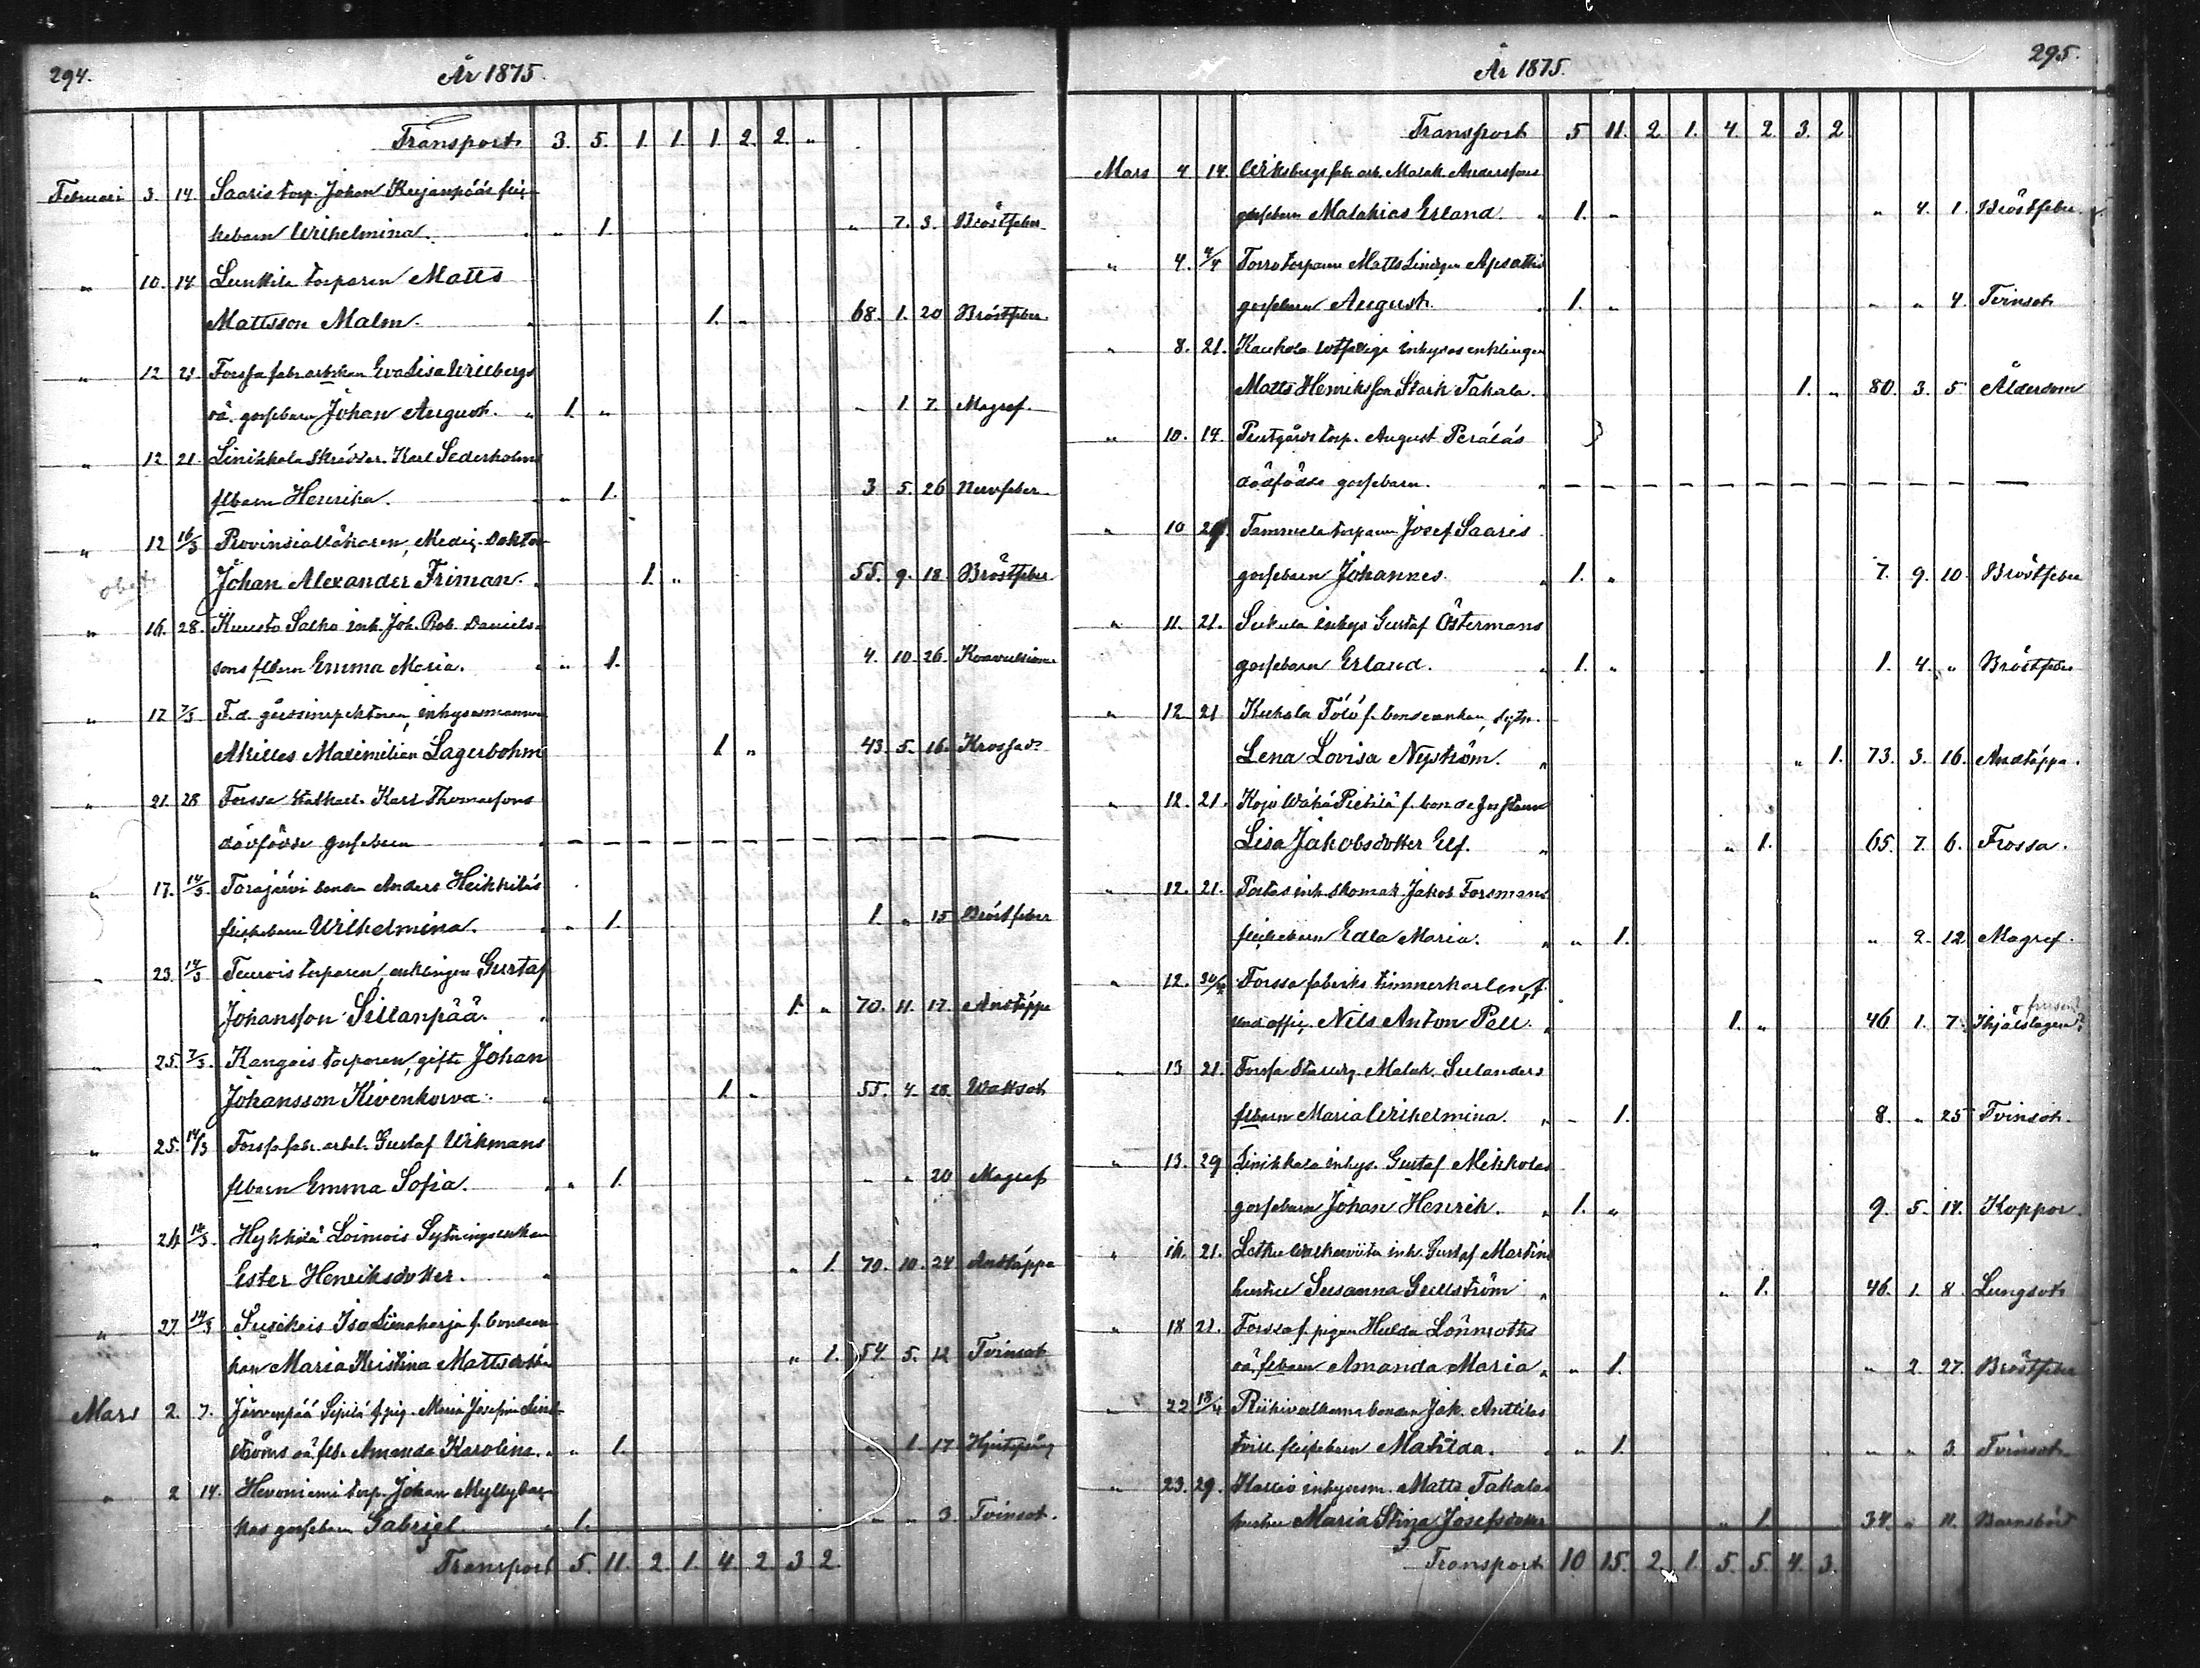 294.
År 1875.
Transport 3. 5. 1. 1. 1. 2. 2. "
Februari 3. 14. Saaris torp. Johan Kujanpääs flic-
kebarn Wilhelmina. " " 1. " 7. 3. Bröstfeber
" 10. 14 Lunkila torparen Matts
Mattsson Malm. " 1. " 68. 1. 20 Bröstfeber
" 12 21 Forssa fabr. Eva Lisa Willbergs
oä. gossebarn Johan August. " 1. " " 1. 7. Magref.
" 12 21. Linikkala Skräddar. Karl Sederholms
flbarn Henrika. " " 1. 3 5. 26 Nervfeber
" 12 16/3 Provinsialläkaren, Medic. Doktor
Johan Alexander Friman. " 1. " 55. 9. 18. Bröstfeber
" 16. 28. Kuusto Salko inh. Joh. Rob. Daniels-
sons flbarn Emma Maria. " " 1. 4. 10 26. Konvulsion
" 17 7/3 F.d. gårdsinspektoren, inhysesmannen
Akilles Maximilian Lagerbohm 1. " 43. 5. 16.
" 21. 28 Forssa Karl Thomassons
dödfödde gossebarn " — — — — — — — — — — — —
" 17. 14/3 Torajärvi bonden Anders Heikkiläs
flickebarn Wilhelmina. " " 1. 1 " 15 Bröstfeber
" 23. 14/3 Teurois torparen, enklingen Gustaf
Johansson Sillanpää. " 1. " 70. 11. 17. Andtäppa
" 25. 7/3. Kangais torparen, gifte Johan
Johansson Kivenkorva. " 1. " 55. 4. 28. Wattsot
" 25. 14/3 Forssa fabr. arbet. Gustaf Wikmans
flbarn Emma Sofia. " " 1. " " 20 Magref
" 26. 14/3. Hykkilä Loimois Sytningsenkan
Ester Henriksdotter. " " 1. 70. 10. 24 Andtäppa
" 27. 14/3 Susikais Iso f. bondeen-
kan Maria Kristina Mattsdotter " 1. 54. 5. 12 Tvinsot
Mars 2. 7. Järvenpää Sepilä f. pig. Maria Josefina Lind-
ströms oä. flb. Amanda Karolina. " " 1. " 1. 17
" 2 14. Hevoniemi torp. Johan Myllykas-
kas gossebarn Gabriel. " 1. " " 3. Tvinsot.
Transport 5. 11. 2. 1. 4. 2. 3 2.
295.
År 1875.
Transport 5 11. 2. 1. 4. 2. 3. 2.
Mars 4 14. Wiksbergs fabr. arb. Malak. Anderssons
gossebarn Malakias Erland. " 1. " " 4. 1. Bröstfeber
" 4. 4/4 Torro torparen Matts
gossebarn August. " 1. " " " 4. Tvinsot
" 8. 21. Kaukola inhyses enklingen
Matts Henriksson Stark Takala. 1. " 80. 3. 5 Ålderdom
" 10. 14. Prestgårds torp. August Peräläs
dödfödde gossebarn. " — — — — — — — — — — — —
" 10 21 Tammela torparen Josef Saaris
gossebarn Johannes. " 1. " 7. 9. 10. Bröstfeber
" 11. 21. Sukula inhys. Gustaf Östermans
gossebarn Erland. " 1. " 1. 4. " Bröstfeber
" 12 21 Kuhala Tölö f. bondeenkan, sytn.
Lena Lovisa Nyström. " " 1. 73. 3. 16. Andtäppa.
" 12. 21. Kojo Wähä Pietilä f. bonde hustrun
Lisa Jakobsdotter Elf. " " 1. 65. 7. 6. Frossa.
" 12. 21. Portas inh. skomak. Jakob Forsmans
flickebarn Edla Maria. " " 1. " 2. 12. Magref.
" 12. 30/4 Forssa fabriks timmerkarlen, f.
und. offic. Nils Anton Pell. " 1. " 46. 1. 7. Ihjälslagen?
" 13 21. Forssa Malak. Selanders
flbarn Maria Wilhelmina. " " 1. 8. " 25 Tvinsot.
" 13. 29 Linikkala inhys. Gustaf Mikkolas
gossebarn Johan Henrik. " 1. " 9. 5. 14. Koppor.
" 16. 21. Gustaf Martins
hustru Susanna Gullström " " 1. 46. 1. 8. Lungsot
" 18 21. Forssa f. pigan Hulda Lönnroths
oä. flbarn Amanda Maria " " 1. " 2. 27. Bröstfeber
" 22 18/4 Riihivalkama bonden Jak. Anttilas
tvill. flickebarn Matilda. " " 1. " " 3. Tvinsot
" 23. 29. Kallio inhysesm. Matts Takalas
hustru Maria Stina Josefsdotter " 1. 34. " 11. Barnsbörd
Transport 10 15. 2. 1. 5. 5. 4. 3.